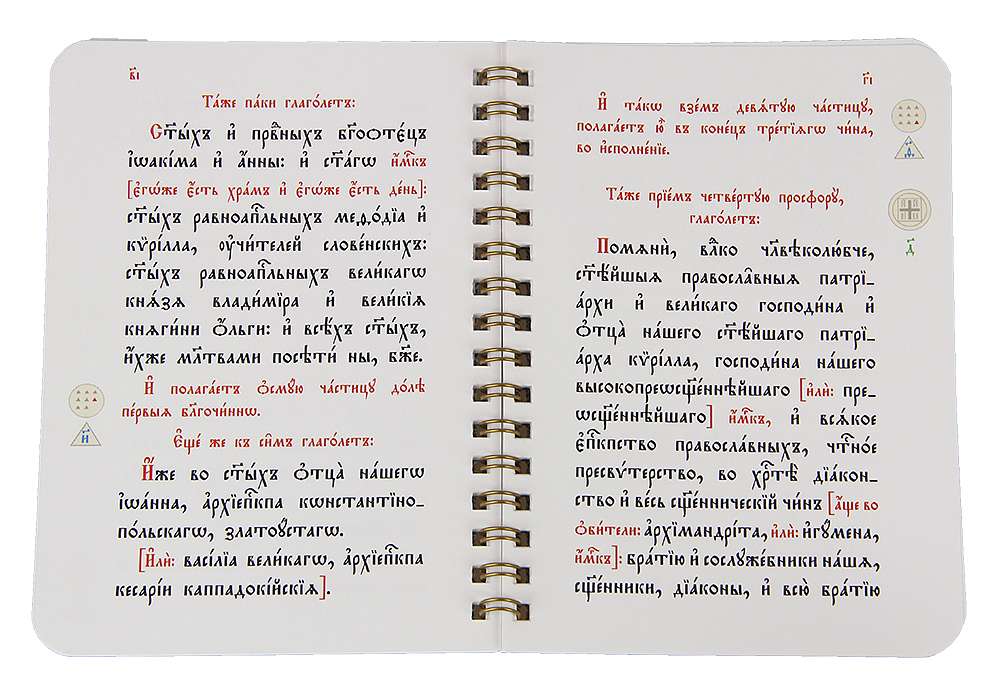 в҃і
Та́же па́ки глаго́летъ:
Ст҃ы́хъ и҆ прв҃ныхъ бг҃оѻтє́цъ
і҆ѡаки́ма и҆ а҆́нны: и҆ ст҃а́гѡ и҆́мкъ
[є҆гѡ́же є҆́сть хра́мъ и҆ є҆гѡ́же є҆́сть де́нь]:
ст҃ы́хъ равноапⷭ҇льныхъ меѳо́дїа и҆
кѷрі́лла, ᲂу҆чи́телей слове́нскихъ:
ст҃ы́хъ равноапⷭ҇льныхъ вели́кагѡ
кнѧ́зѧ влади́мїра и҆ вели́кїѧ
кнѧги́ни ѻ҆́льги: и҆ всѣ́хъ ст҃ы́хъ,
и҆́хже мл҃твами посѣти́ ны, бж҃е.
И҆ полага́етъ ѻ҆сму́ю ча́стицу до́лѣ
пе́рвыѧ бл҃гочи́ннѡ.
Є҆ще́ же къ си̑мъ глаго́летъ:
И҆̀же во ст҃ы́хъ ѻ҆тца̀ на́шегѡ
і҆ѡа́нна, а҆рхїепⷭ҇кпа кѡнстанті́но_
по́льскагѡ, златоꙋ́стагѡ.
[И҆лѝ: васі́лїа вели́кагѡ, а҆рхїепⷭ҇кпа
кесарі́и каппадокі́йскїѧ].
и҃
г҃і
И҆ та́кѡ взе́мъ девѧ́тую ча́стицу,
полага́етъ ю҆̀ въ коне́цъ тре́тїѧгѡ чи́на,
во и҆сполне́нїе.
Та́же прїе́мъ четве́ртую просфору̀,
глаго́летъ:
Помѧнѝ, влⷣко чл҃вѣколю́бче,
ст҃ѣ́йшыѧ правосла̑вныѧ патрї_
а́рхи и҆ вели́каго господи́на и҆
ѻ҆тца̀ на́шего ст҃ѣ́йшаго патрї_
а́рха кѷрі́лла, господи́на на́шего
высокопреѡсщ҃е́ннѣйшаго [и҆лѝ: пре_
ѡсщ҃е́ннѣйшаго] и҆́мкъ, и҆ всѧ́кое
є҆пⷭ҇кпство правосла́вныхъ, чтⷭ҇но́е
пресвѵ́терство, во хрⷭ҇тѣ̀ дїа́кон_
ство и҆ ве́сь сщ҃е́нническїй чи́нъ [а҆́ще во
ѻ҆би́тели: а҆рхїмандрі́та, и҆лѝ: и҆гꙋ́мена,
и҆́мкъ]: бра́тїю и҆ сослꙋже́бники на́шѧ,
сщ҃е́нники, дїа́коны, и҆ всю̀ бра́тїю
д҃